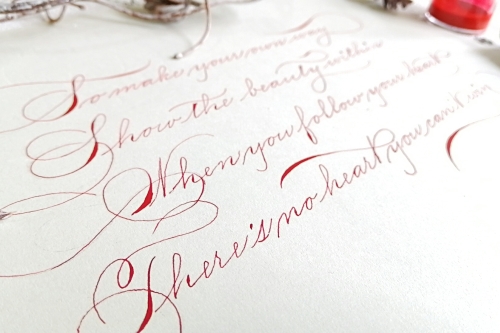 So make your own way
Show the beauty within
When you follow your heart
There's no heart you can't win